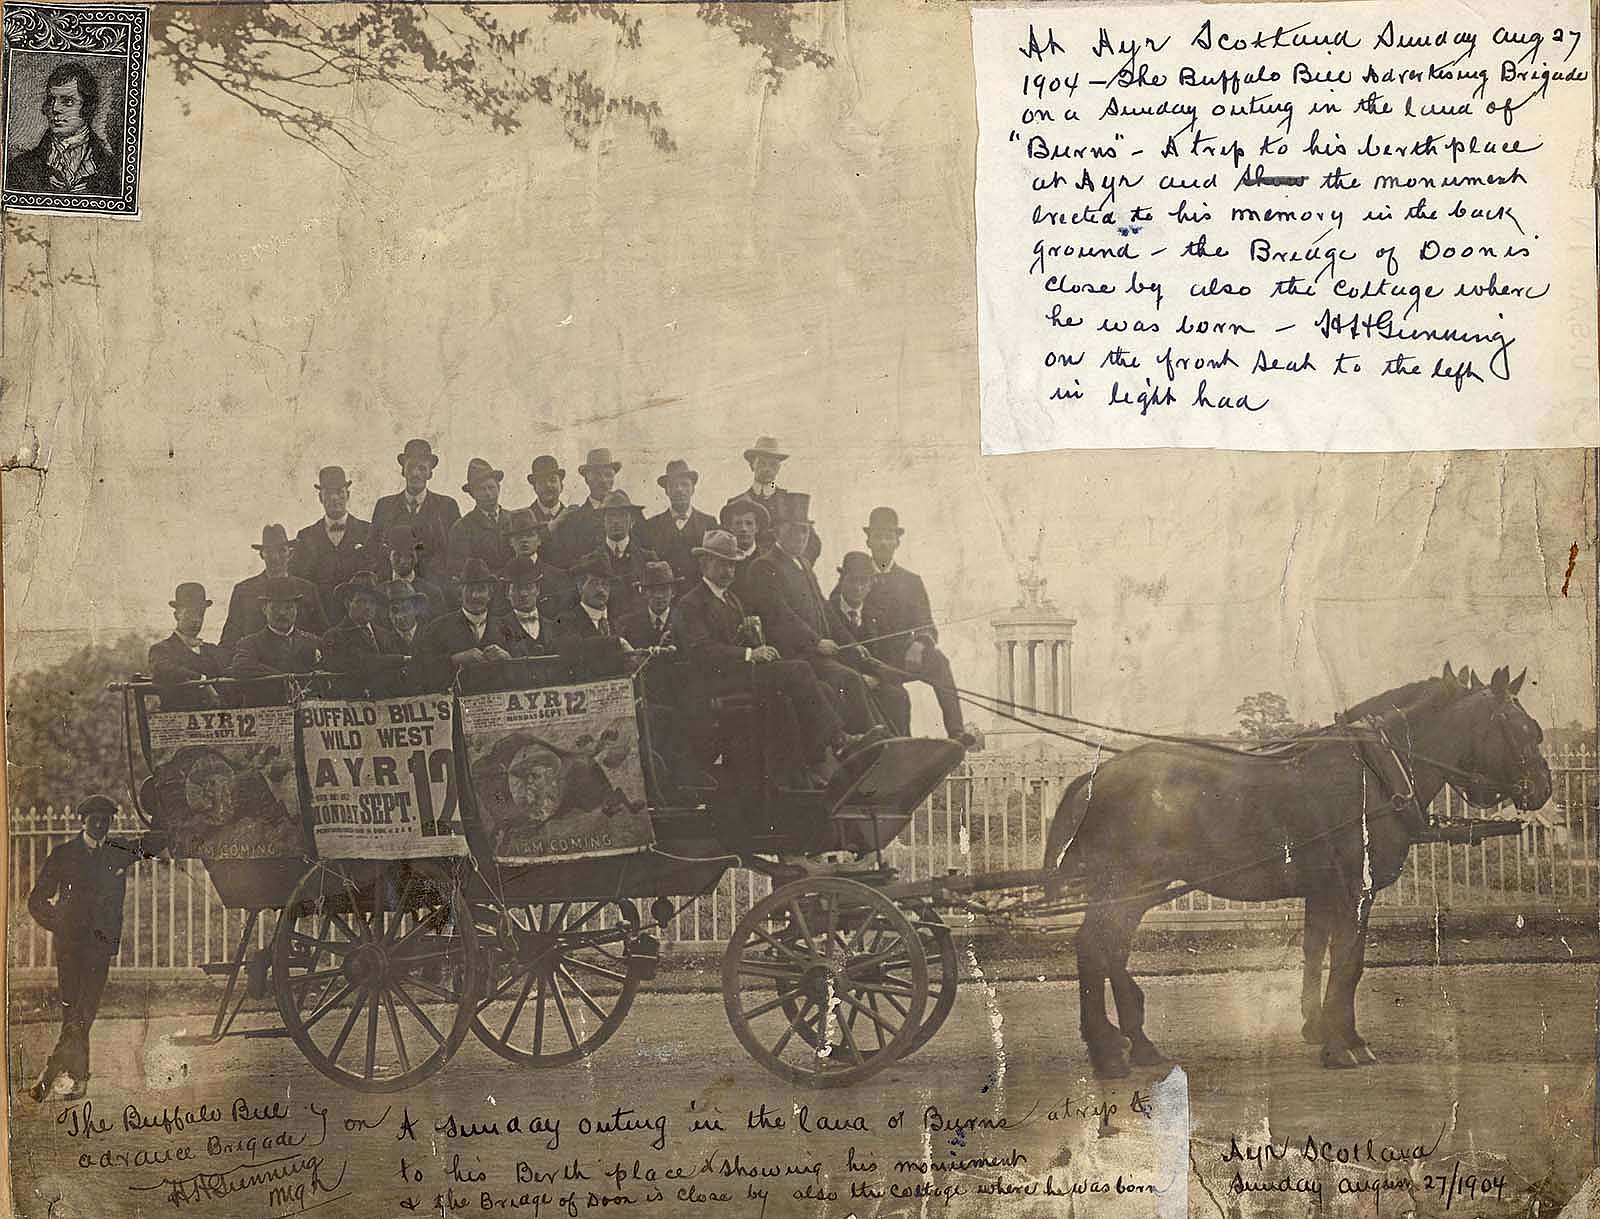 At Ayr Scotland Sunday Aug 27
1904 – The Buffalo Bill Advertising Brigade
on a Sunday outing in the land of
"Burns" – A trip to his berth place
at Ayr and the monument
erected to his memory in the back
ground – the Bridge of Doon is
close by also the cottage where
he was born – H H Gunning
on the front seat to the left
in light had
AYR 12
MONDAY SEPT.
I AM COMING
BUFFALO BILL'S
WILD WEST
AYR 12
MONDAY SEPT.
AYR 12
MONDAY SEPT.
I AM COMING
The Buffalo Bill
advance Brigade
H H Gunning
Mgr
on A Sunday outing in the land of Burns a trip to
to his Berth place & showing his monument
& the Bridge of Doon is close by also the cottage where he was born
Ayr Scotland
Sunday August 27/1904